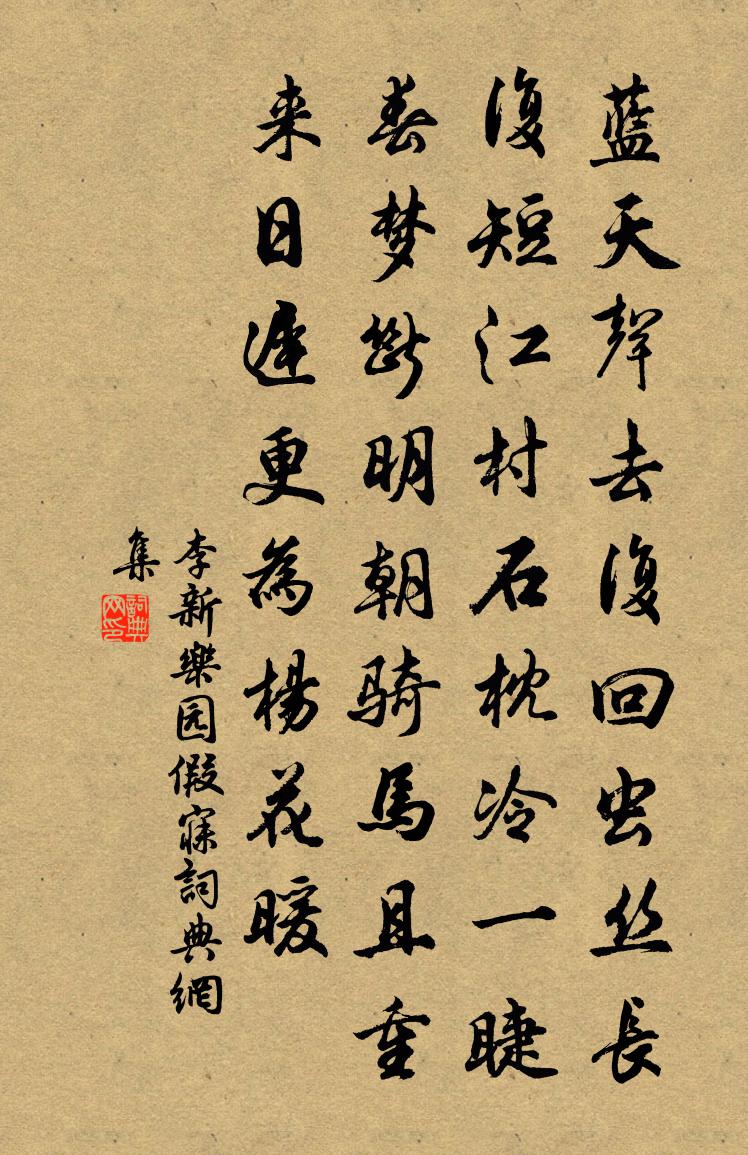 藍天聲去復回虫丝長
復短江村石枕冷一睫
春梦斷明朝騎馬且重
来日遲更為楊花暖
李新樂园假寐詞典網
集
詞典
网印